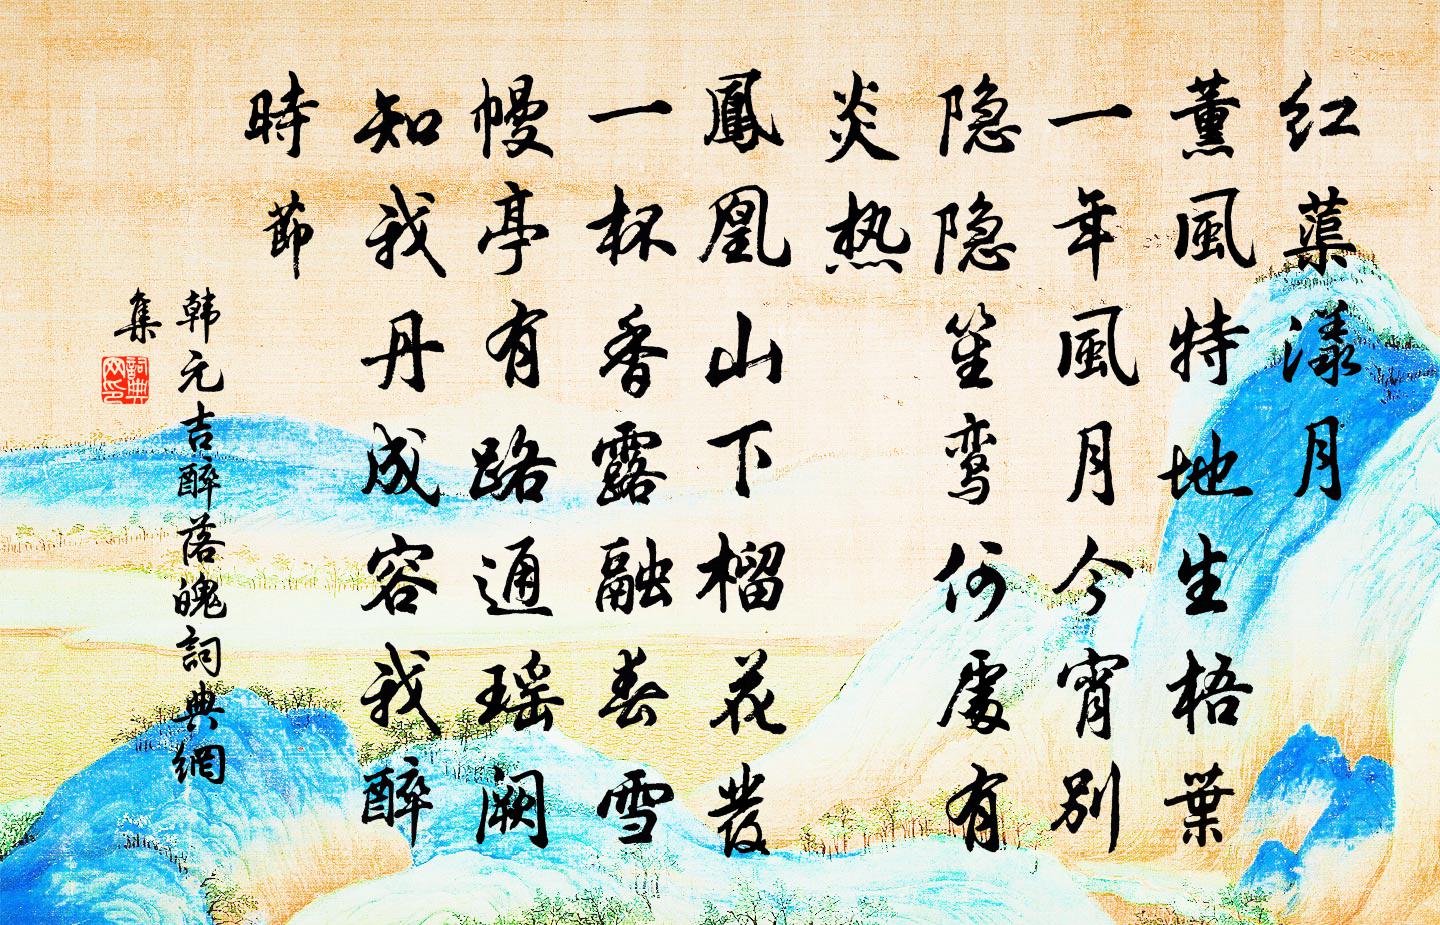 红蕖漾月
薰風特地生梧葉
一年風月今宵别
隐隐笙鸾何處有
炎热
鳳凰山下榴花發
一杯香露融春雪
幔亭有路通瑶阙
知我丹成容我醉
時節
韩元吉醉落魄詞典網
集
詞典
网印